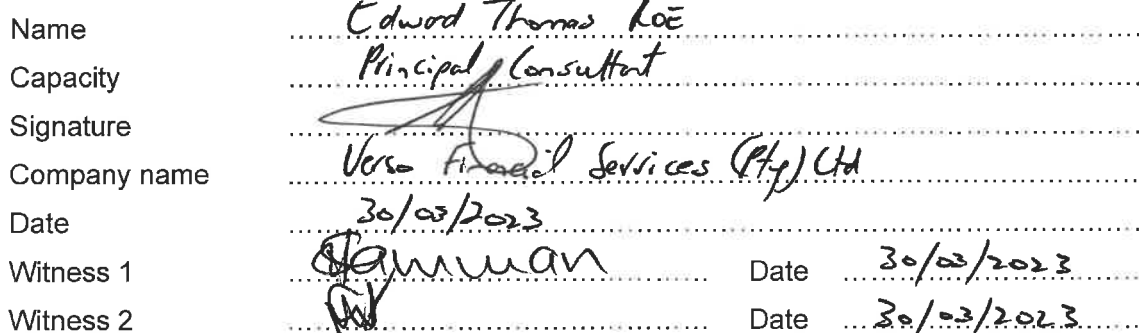 Name Edward Thomas ROE
Capacity Principal Consultant
Signature
Company name Verso Financial Services (Pty) Ltd
Date 30/03/2023
Witness 1 Date 30/03/2023
Witness 2 Date 30/03/2023